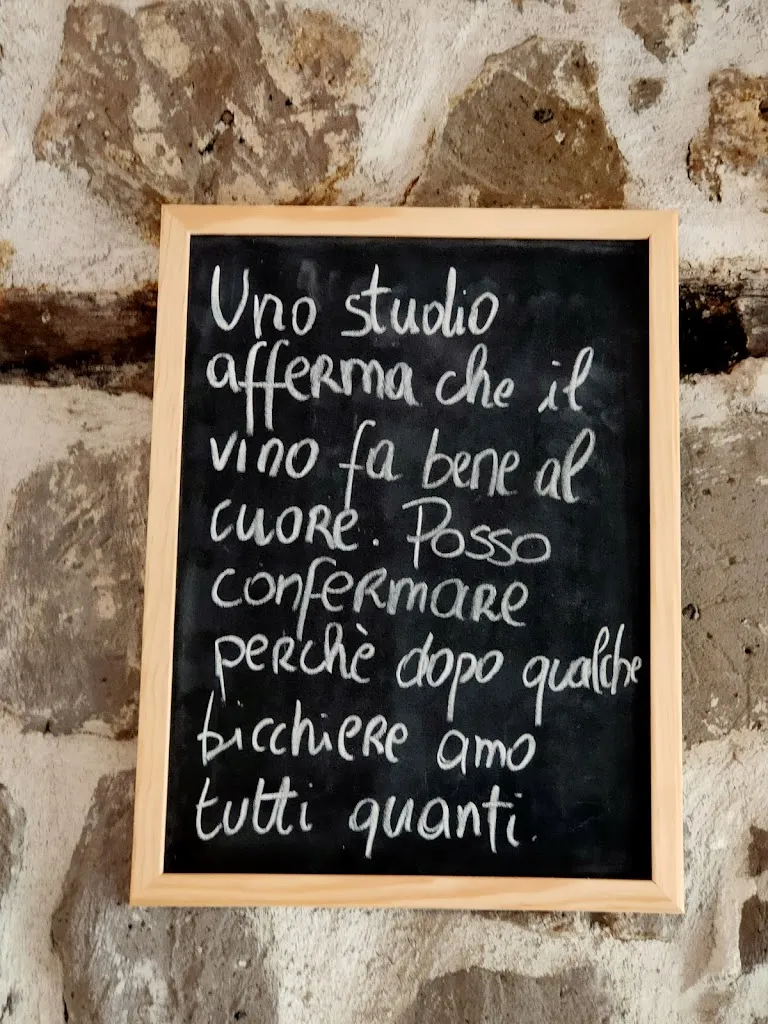 Uno studio
afferma che il
vino fa bene al
cuore. Posso
confermare
perchè dopo qualche
bicchiere amo
tutti quanti.